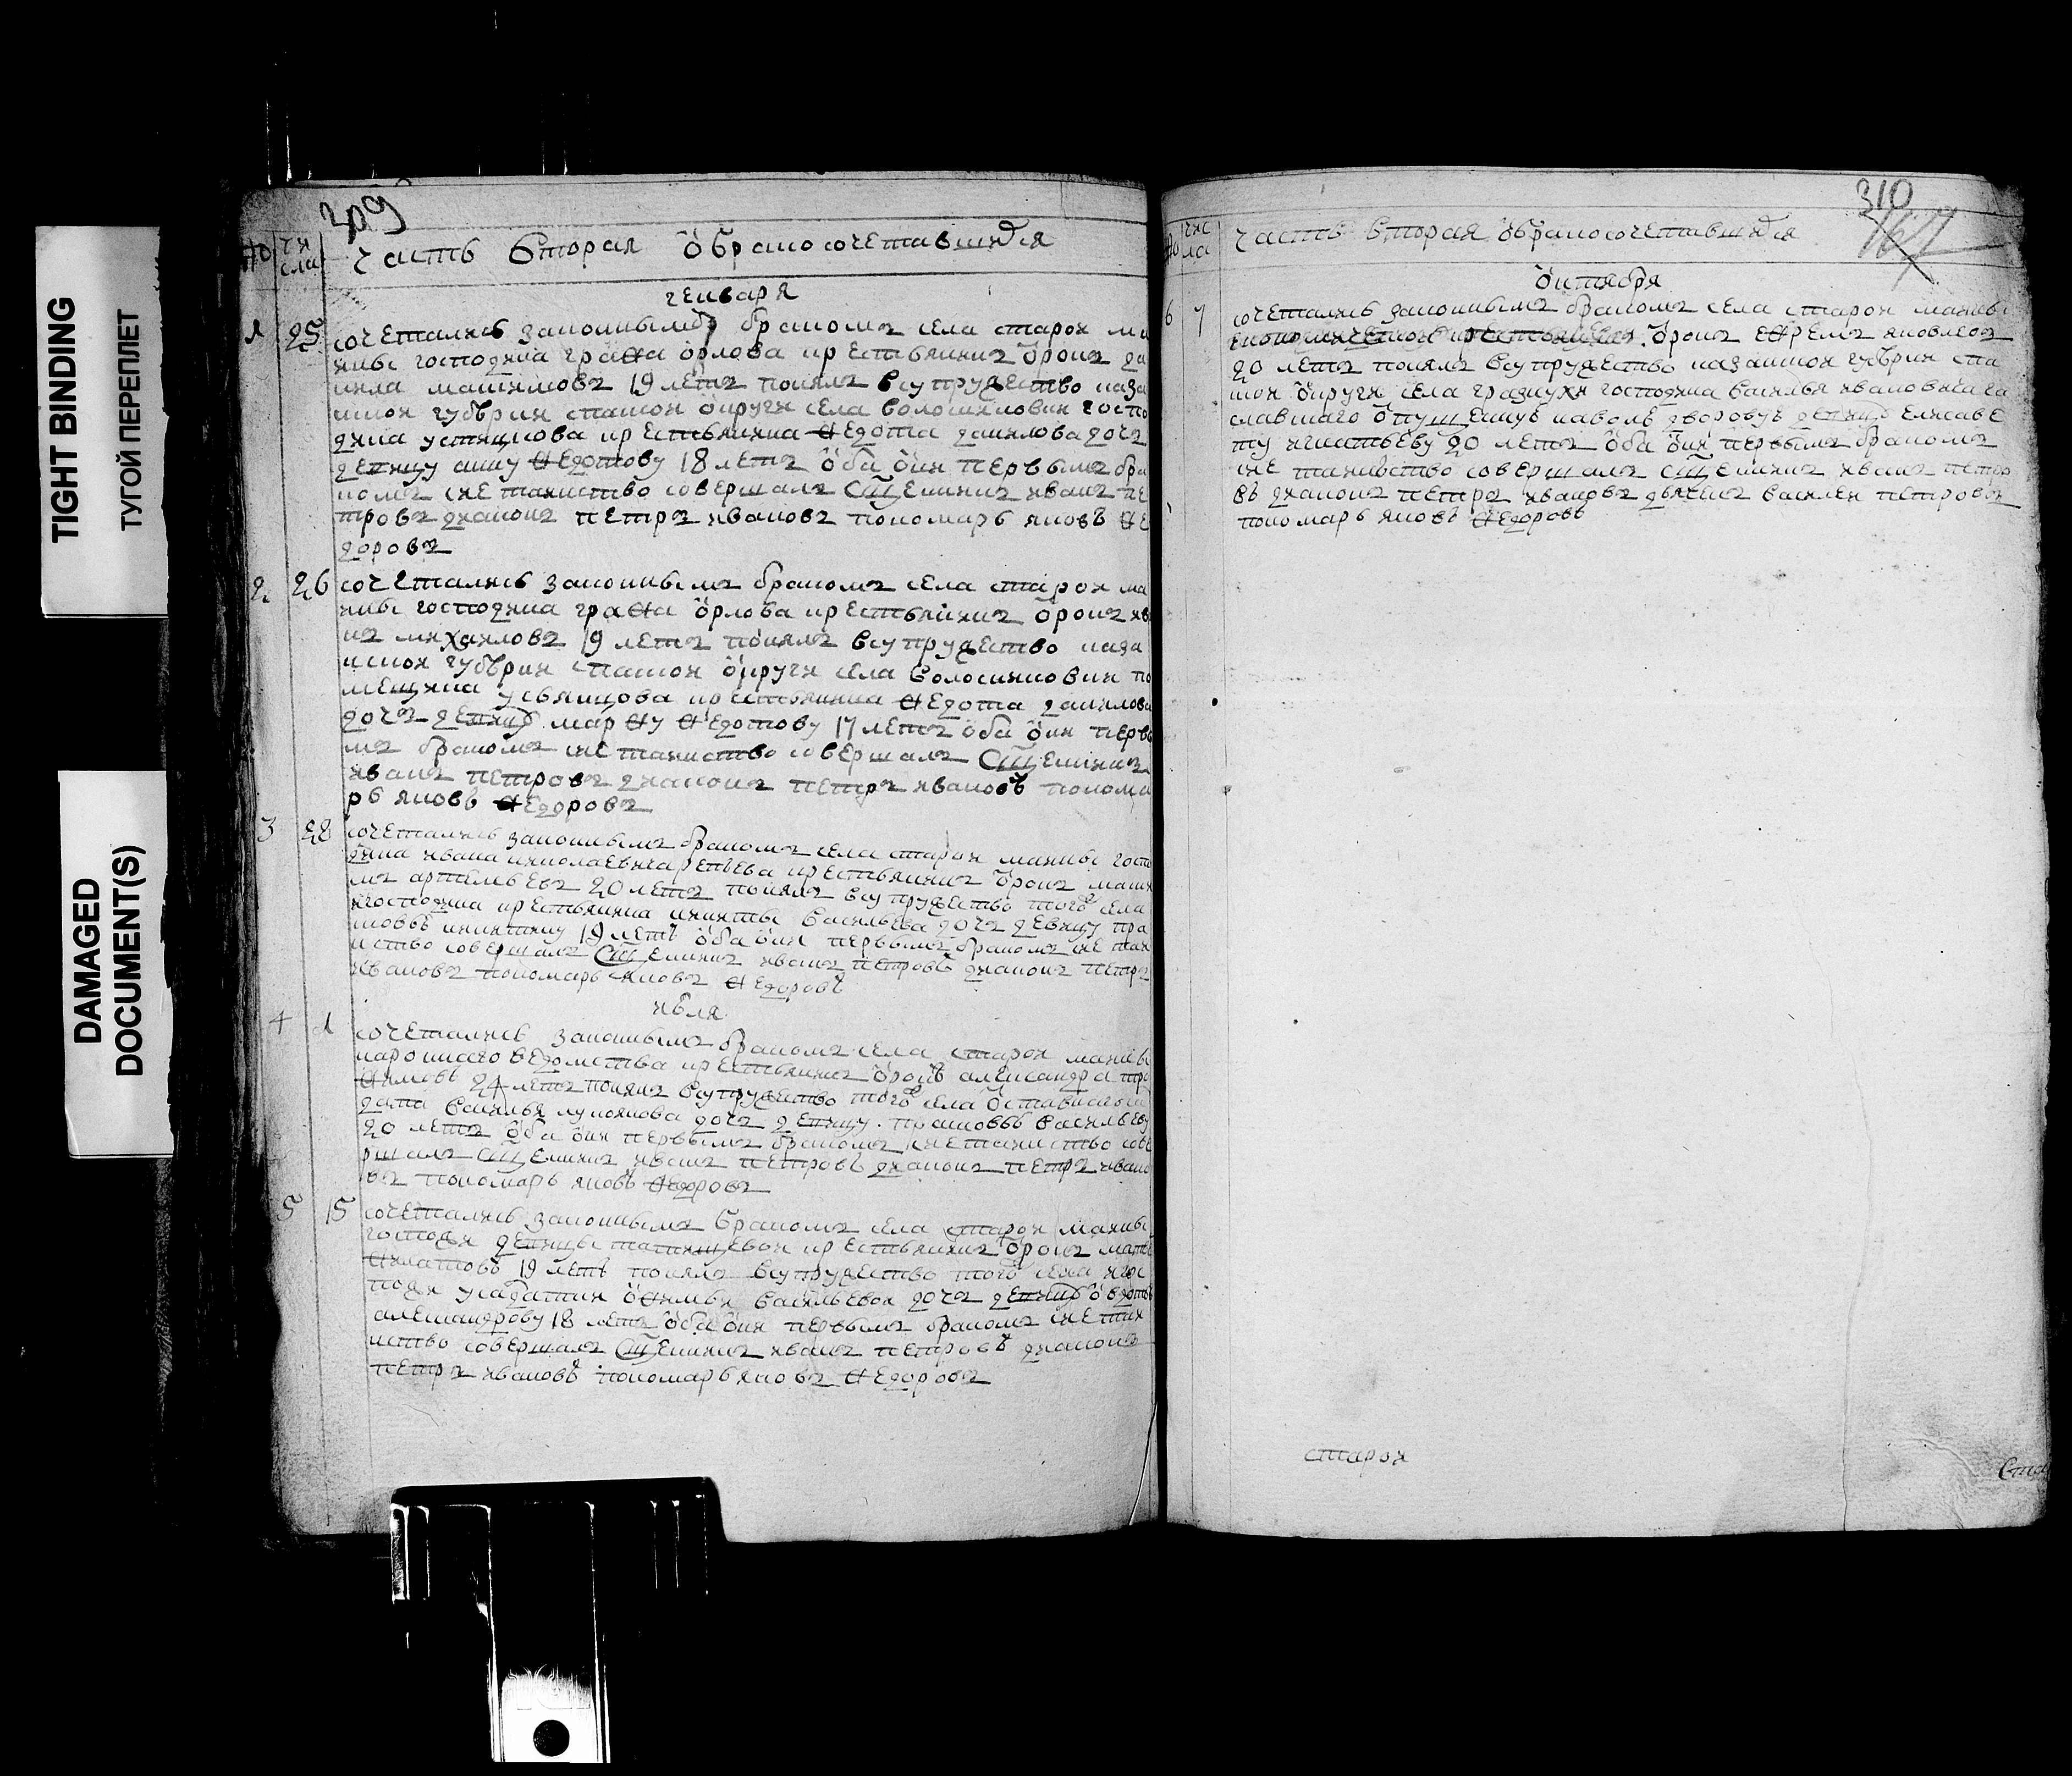 TIGHT BINDING
ТУГОЙ ПЕРЕПЛЕТ
DAMAGED
DOCUMENT(S)
ТУГОЙ
309
чи
сла
часть вторая о бракосочетавшихся
генваря
1 25 сочетались законнымъ бракомъ села старои ма
ины господина графа орлова крестьянинъ отрокъ да
нила максимовъ 19 летъ понялъ в супружество каза
нскои губернии спаскои округи села волосниковки госпо
дина крестьянина федота данилова дочь
девицу анну федотову 18 летъ оба они первымъ бра
комъ сие таинство совершалъ священникъ иванъ пе
тровъ диаконъ петръ ивановъ пономарь яковъ фе
доровъ
2 26 сочетались законнымъ бракомъ села старои ма
ины господина графа орлова крестьянинъ отрокъ ива
нъ михаиловъ 19 летъ понялъ в супружество каза
нскои губернии спаскои округи села волосниковки по
мещика крестьянина федота данилова
дочь девицу марфу федотову 17 летъ оба они первы
мъ бракомъ сие таинство совершалъ священникъ
иванъ петровъ диаконъ петръ ивановъ понома
рь яковъ федоровъ
3 28 сочетались законнымъ бракомъ села старои маины госпо
дина ивана николаевича крестьянинъ отрокъ макси
мъ артемьевъ 20 летъ понялъ в супружество тогожъ села
и господина крестьянина никиты васильева дочь девицу пра
сковью никитину 19 летъ оба они первымъ бракомъ сие таи
нство совершалъ священникъ иванъ петровъ диаконъ петръ
ивановъ пономарь яковъ федоровъ
июля
4 1 сочетались законнымъ бракомъ села старои маины
ведомства крестьянинъ отрокъ александра тро
фимовъ 24 летъ понялъ в супружество тогожъ села отставнаго сол
дата василья лукоянова дочь девицу прасковью васильеву
20 летъ оба они первымъ бракомъ сие таинство сове
ршалъ священникъ иванъ петровъ диаконъ петръ ивано
въ пономарь яковъ федоровъ
5 15 сочетались законнымъ бракомъ села старои маины
госпожи девицы татищевои крестьянинъ отрокъ
19 летъ понялъ в супружество тогожъ села и гос
пожи васильевои дочь девицу
александрову 18 летъ оба они первымъ бракомъ сие таи
нство совершалъ священникъ иванъ петровъ диаконъ
петръ ивановъ пономарь яковъ федоровъ
310
чис
ла
часть вторая о бракосочетавшихся
октября
6 7 сочетались законнымъ бракомъ села старои маины
отрокъ ефремъ яковлевъ
20 летъ понялъ в супружество казанскои губернии спа
скои округи села грязнухи господина василья ивановича
отпущенную наволю дворовую девицу елисаве
ту игнатьеву 20 летъ оба они первымъ бракомъ
сие таинство совершалъ священникъ иванъ петро
въ диаконъ петръ ивановъ дьячекъ василеи петровъ
пономарь яковъ федоровъ
старои